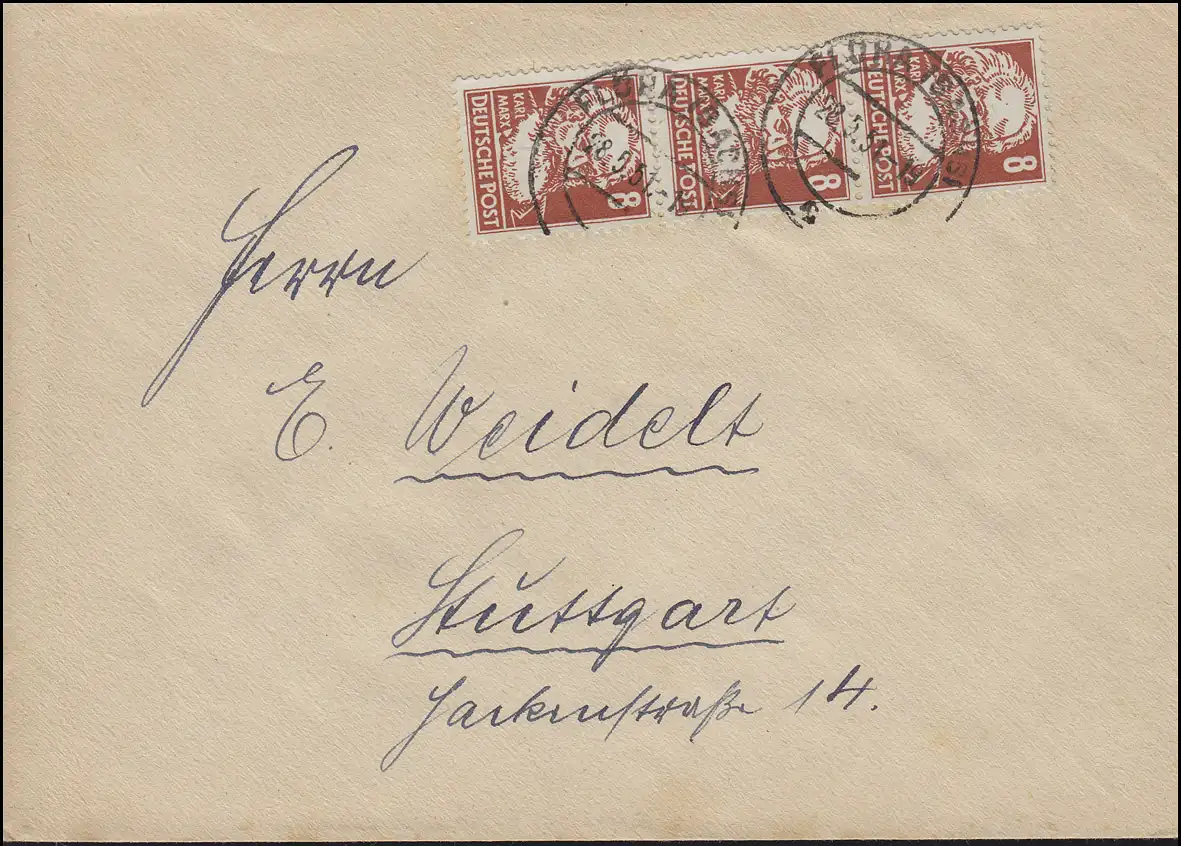 DEUTSCHE POST
KARL MARX
8
DEUTSCHE POST
KARL MARX
8
DEUTSCHE POST
KARL MARX
8
FLÖHA
FLÖHA
Herrn
E. Weidelt
Stuttgart
14.